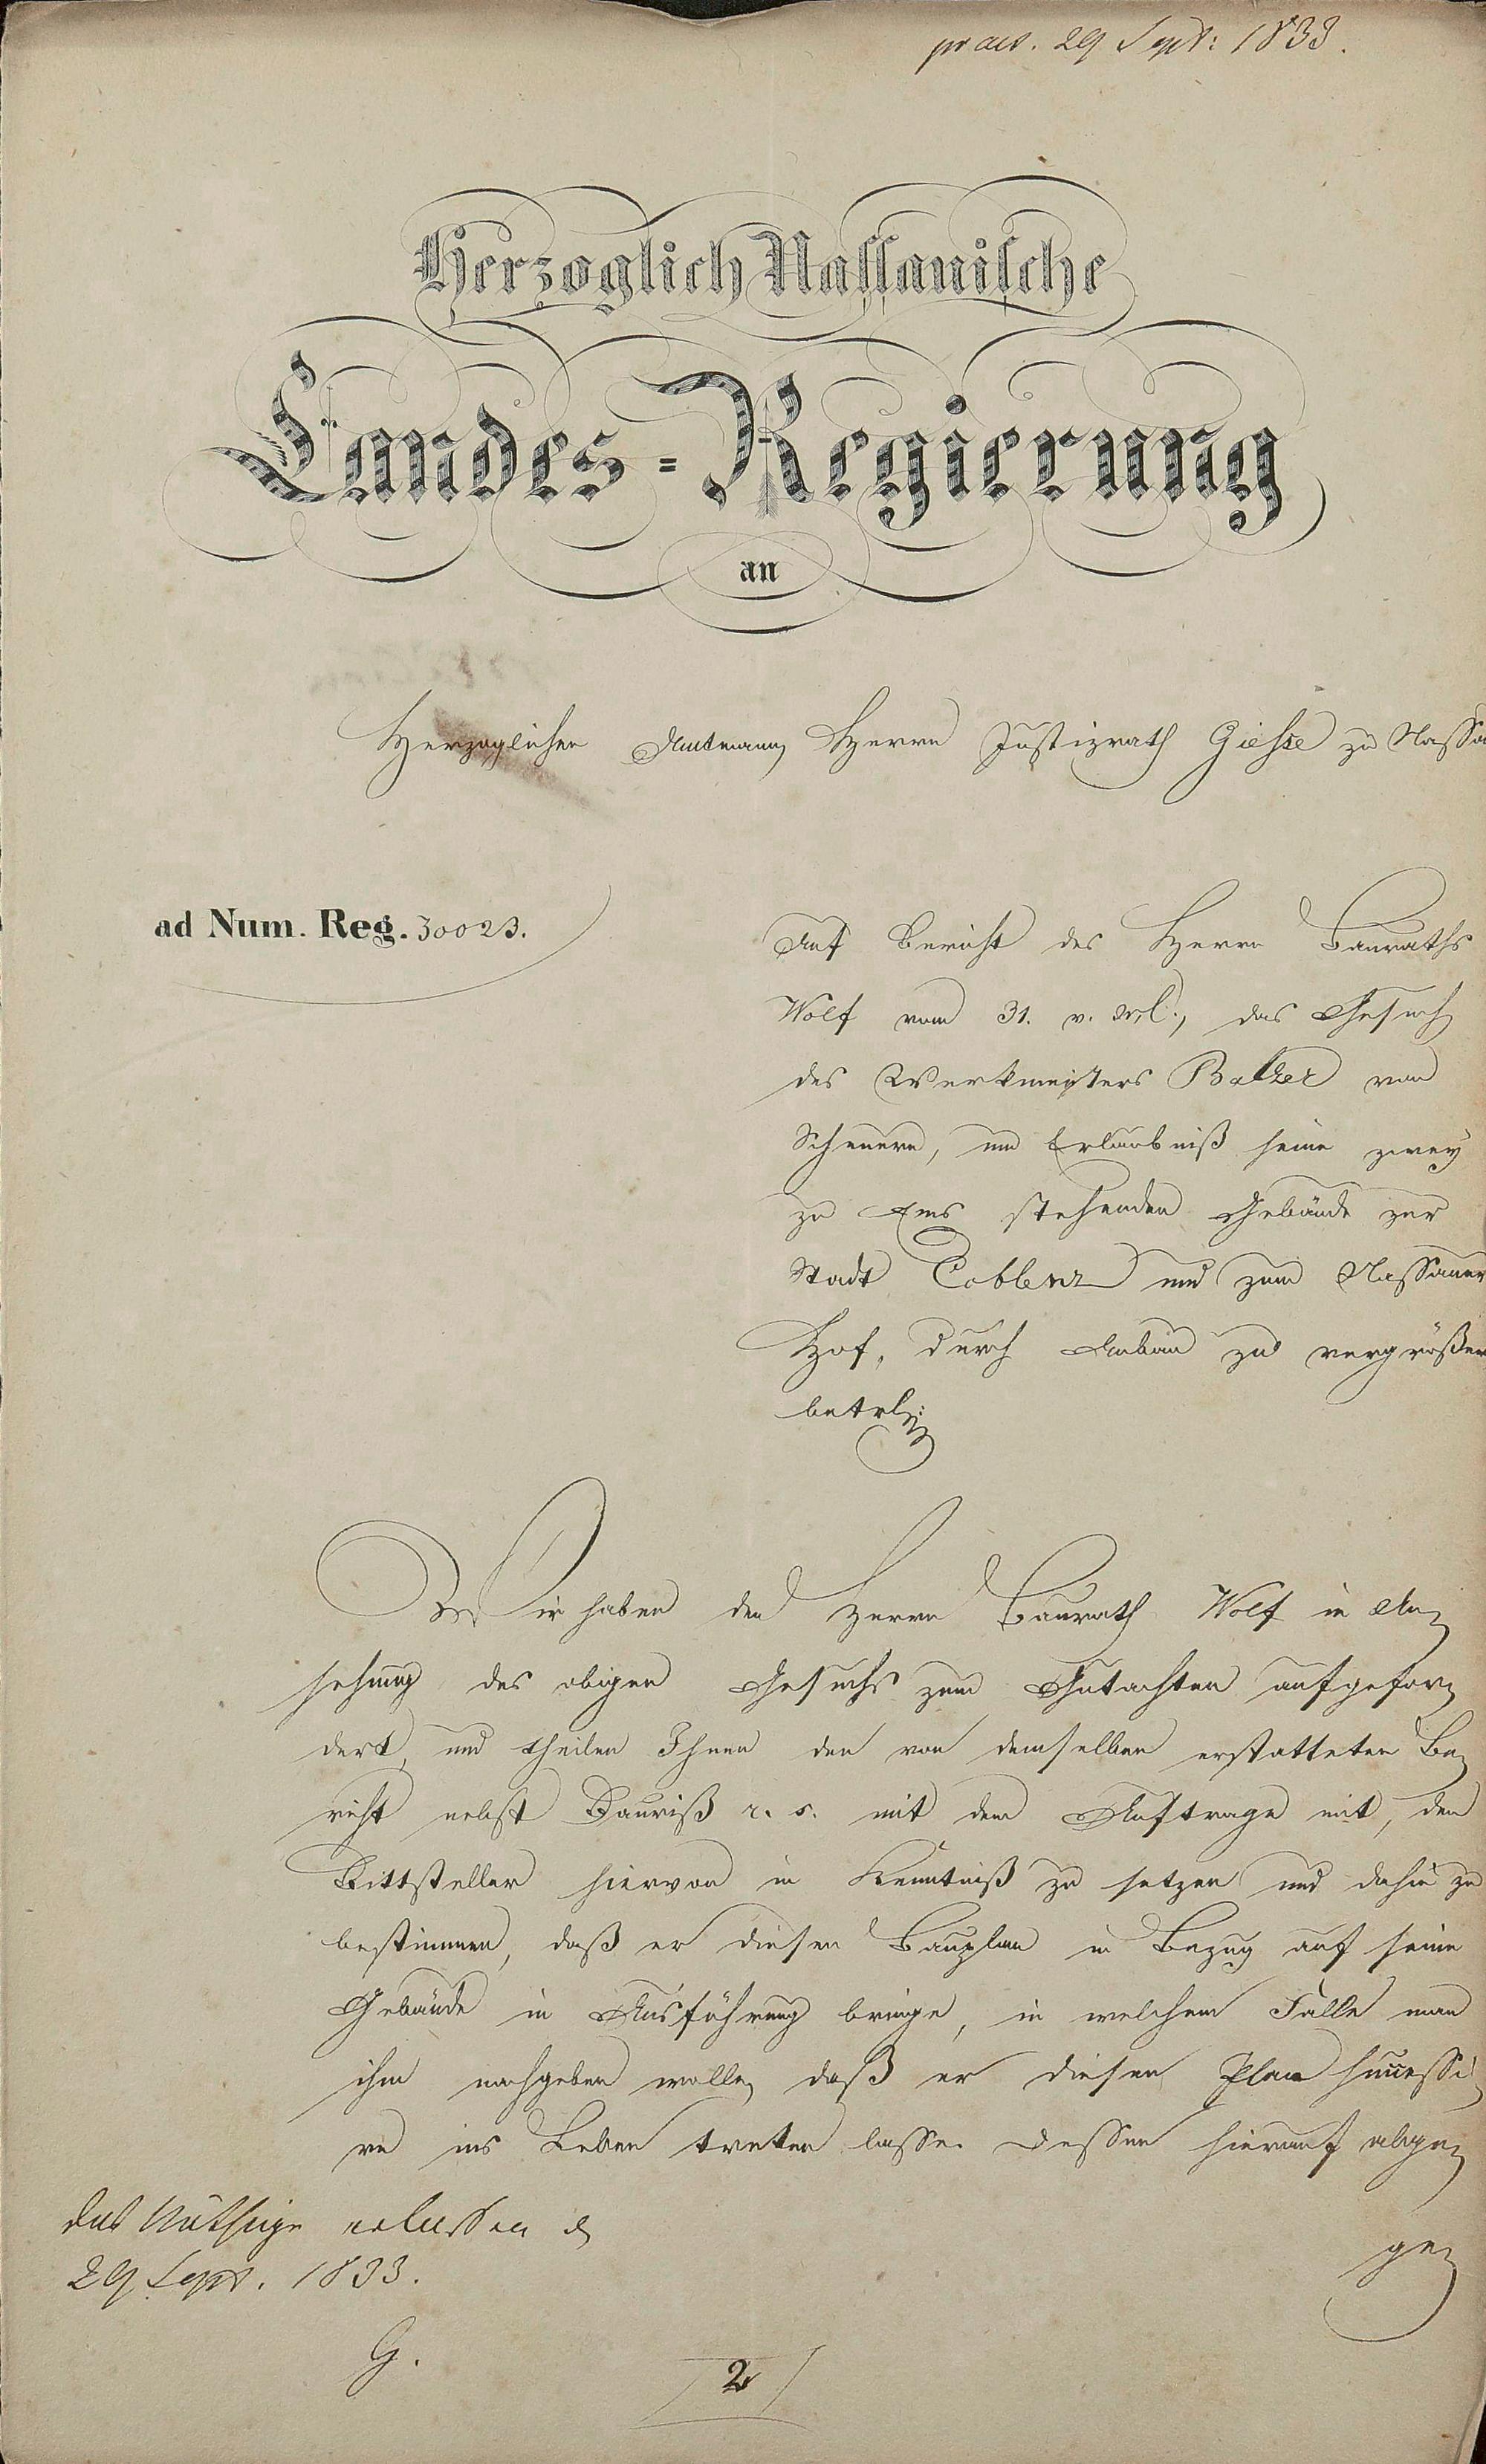 praes. 29 Sept: 1833.
Herzoglich Nassauische
Landes-Regierung
an
Herzoglichen Amtmann Herrn Justizrath Giesse zu Nassa
ad Num. Reg. 30023.
Auf Bericht des Herrn Bauraths
Wolf vom 31. v. M., das Gesuch
des Werkmeisters Balzer von
Scheuern, um Erlaubniß seine zwey
zu Ems stehenden Gebäude zur
Stadt Coblenz und zum Nassauer
Hof, durch Anbau zu vergrößern
betr:
Wir haben den Herrn Baurath Wolf in An-
sehung des obigen Gesuchs zum Gutachten aufgefor-
dert, und theilen Ihnen den von demselben erstatteten Be-
richt nebst Bauriß r. s. mit dem Auftrage mit, den
Bittsteller hiervon in Kenntniß zu setzen und dahin zu
bestimmen, daß er diesen Bauplan in Bezug auf seine
Gebäude in Ausführung bringe, in welchem Falle man
ihm nachgeben wolle, daß er diesen Plan successi-
ve ins Leben treten lasse. Dessen hierauf abge-
ge-
das Nöthige erlassen d
29 Sept. 1833.
G.
2